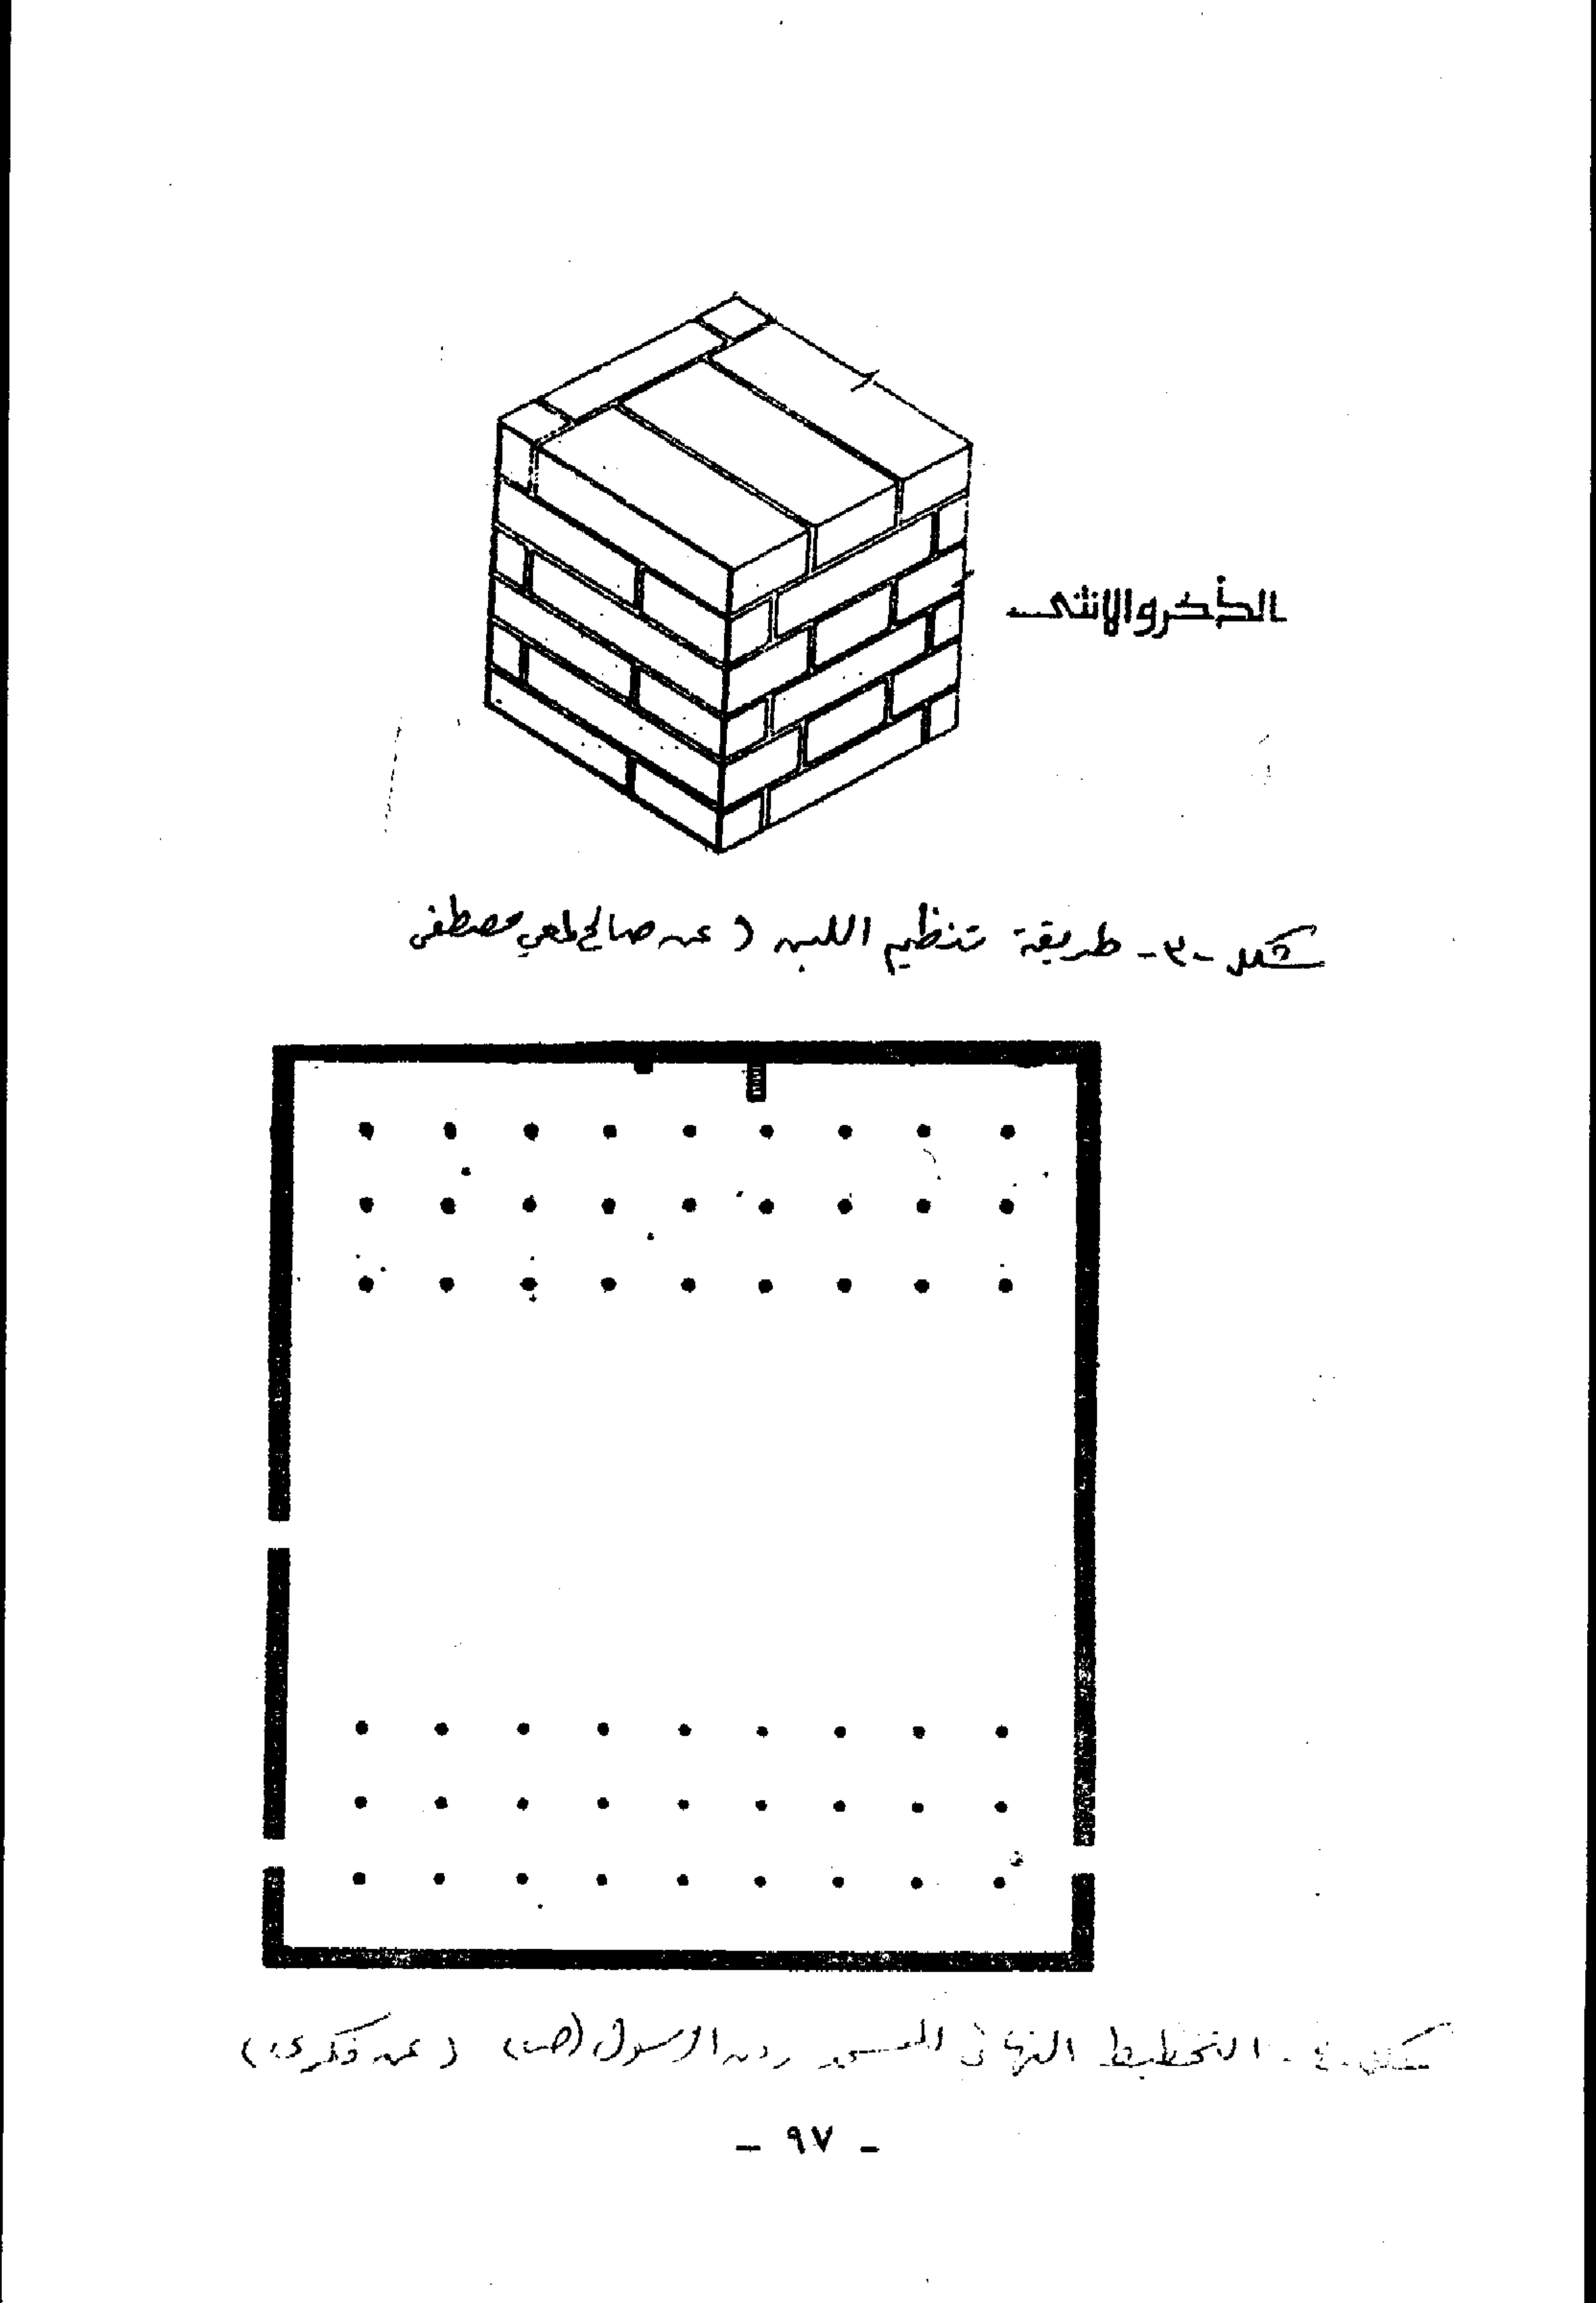 الذكر والانثى
شكل -٣- طريقة تنظيم اللبن ( عن صالح لمعي مصطفى
شكل -٤- التخطيط النهائي لمسجد الرسول (ص) ( عن فكري )
- ٩٧ -